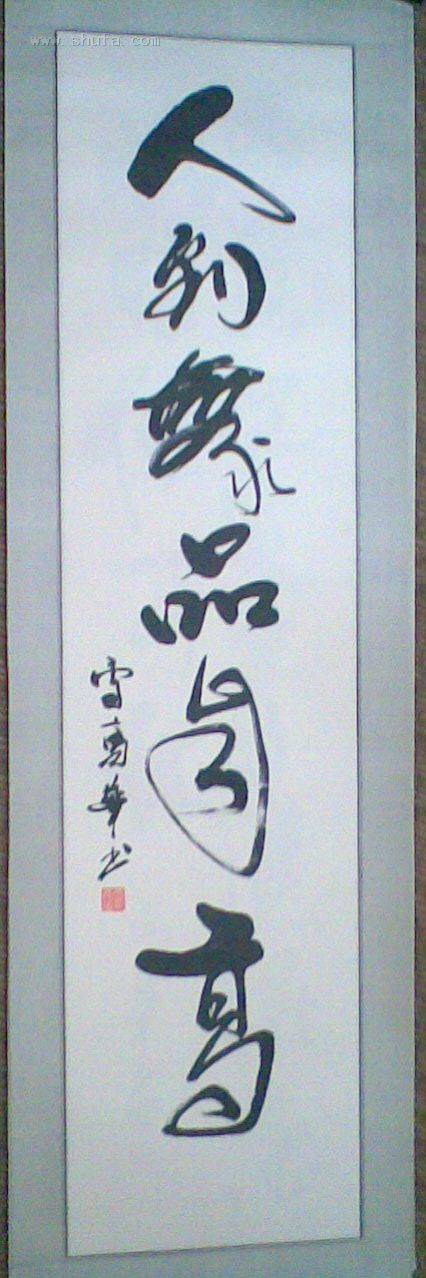 www.shufa.com
人到無求品自高
雪高華书